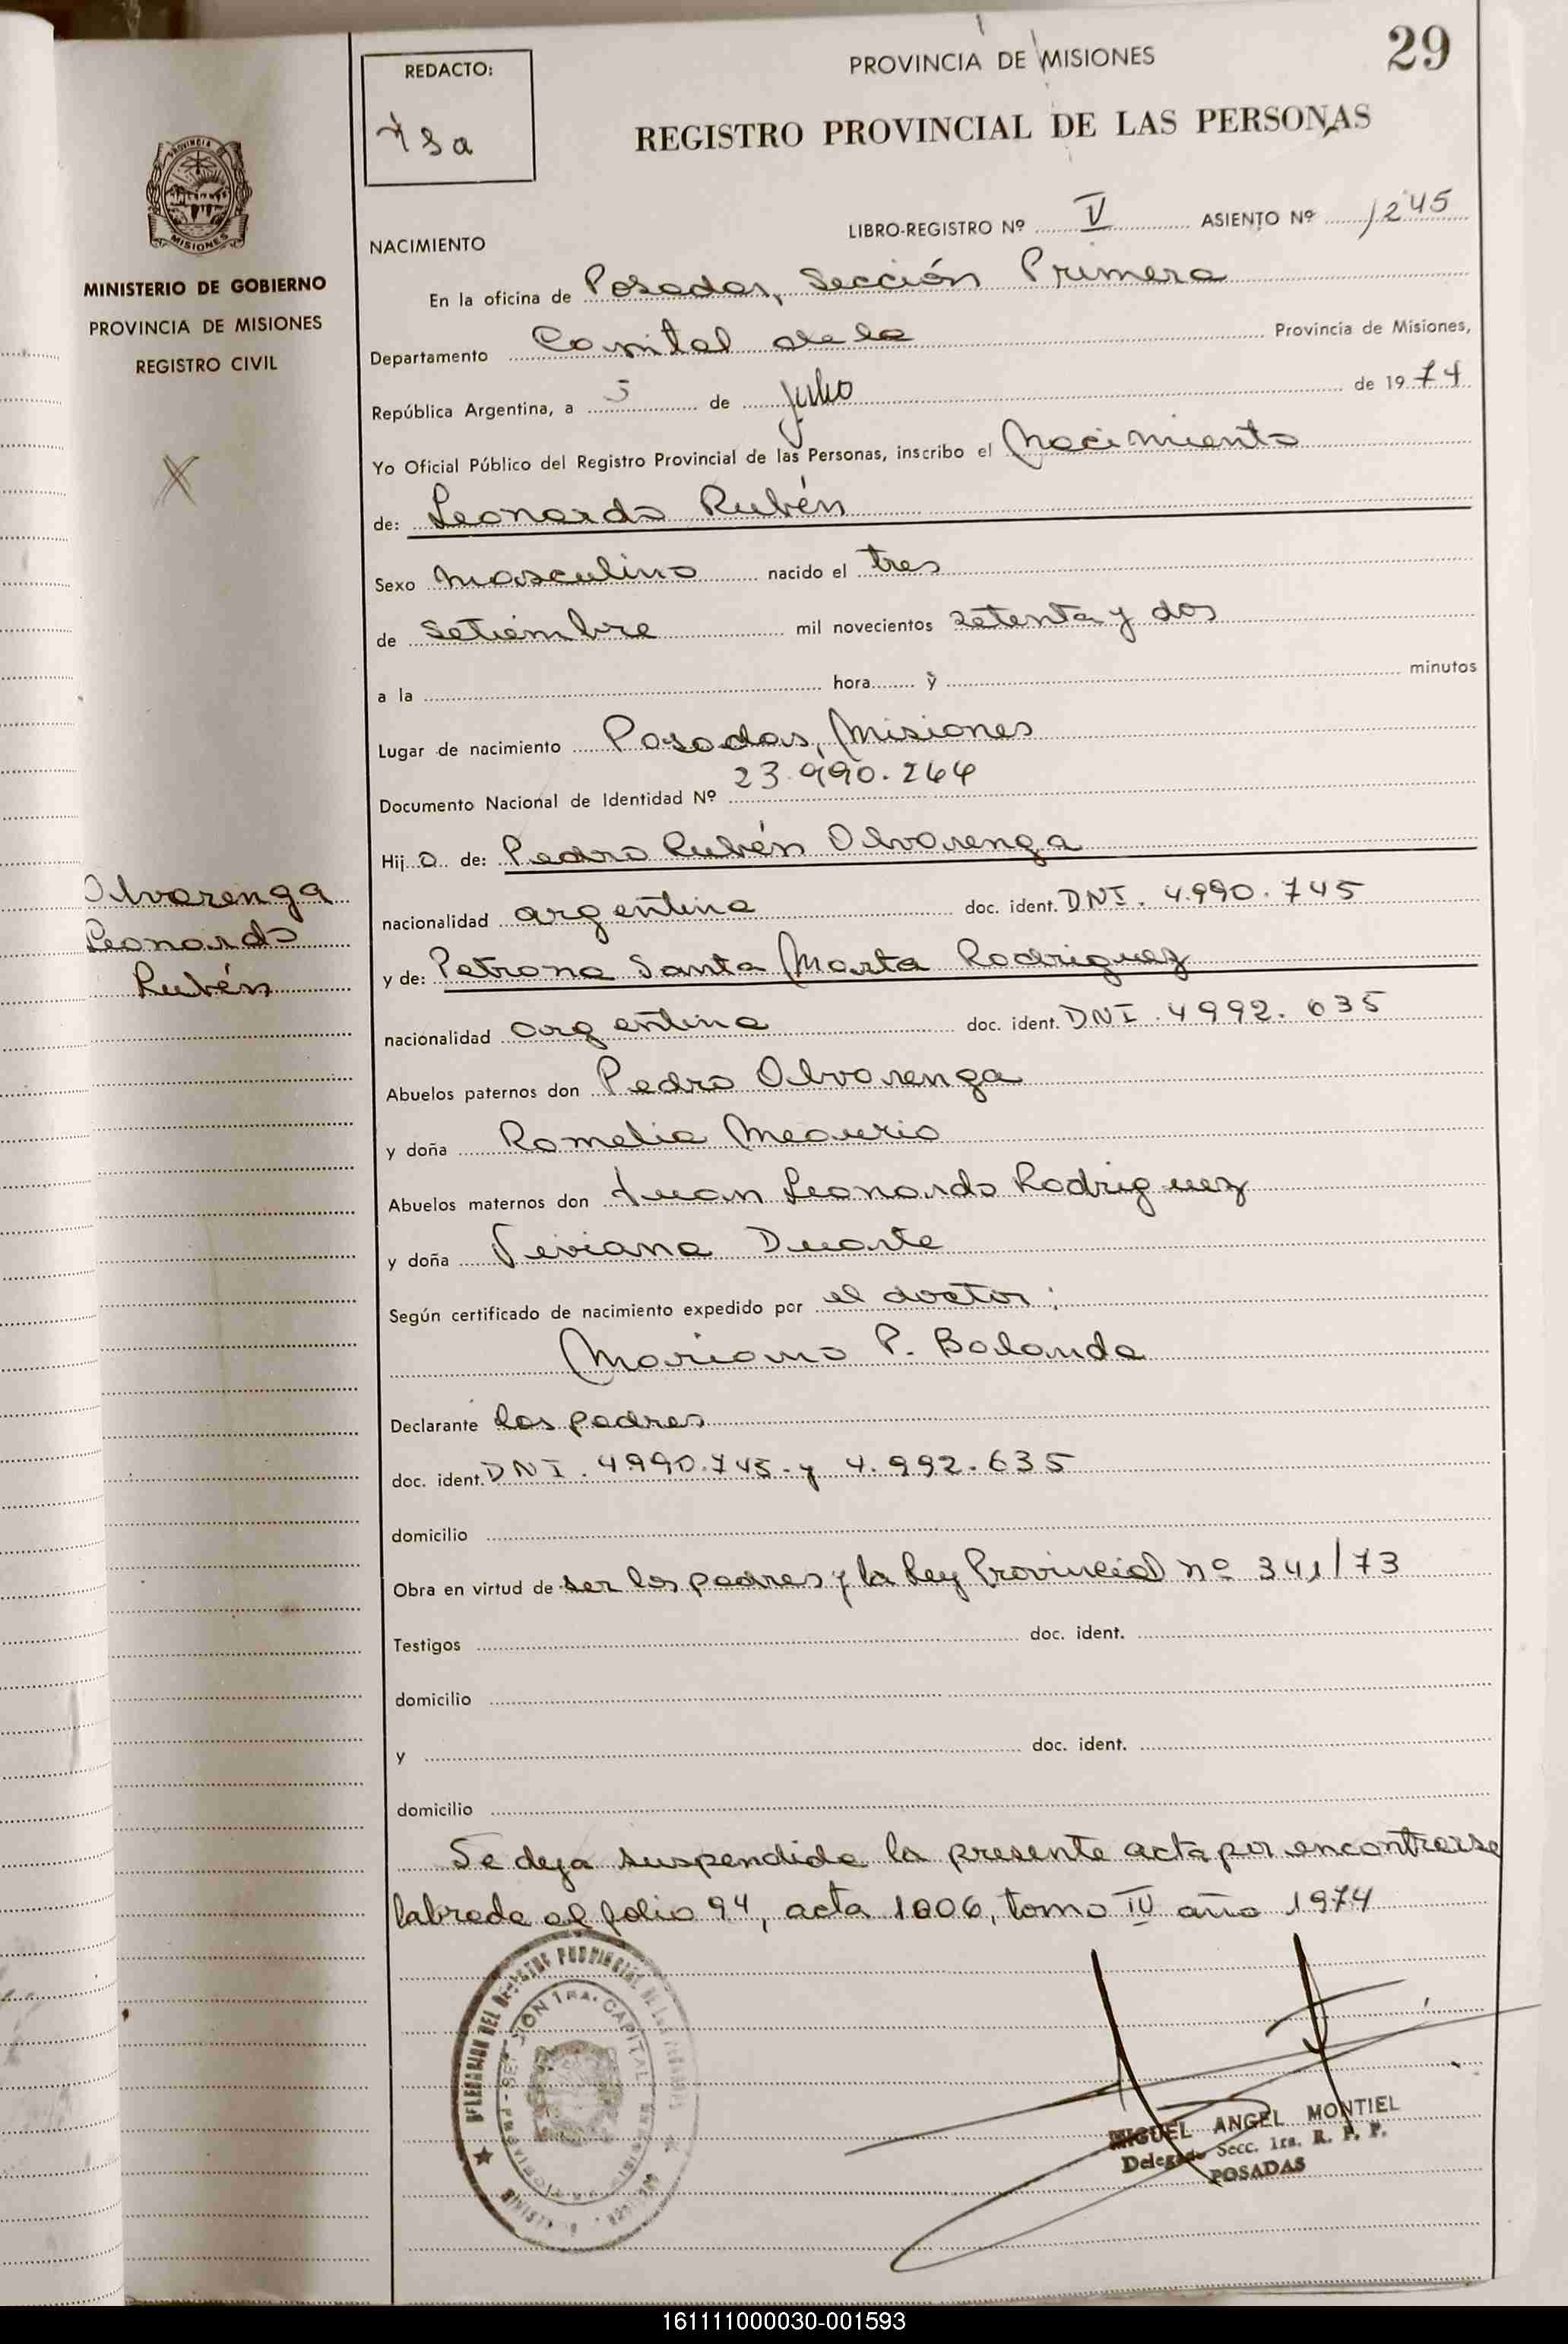 29
REDACTO:
73a
PROVINCIA DE MISIONES
REGISTRO PROVINCIAL DE LAS PERSONAS
PROVINCIA DE
MISIONES
MINISTERIO DE GOBIERNO
PROVINCIA DE MISIONES
REGISTRO CIVIL
X
LIBRO-REGISTRO Nº V ASIENTO Nº 1245
NACIMIENTO
En la oficina de Posadas, Sección Primera
Departamento Capital de la Provincia de Misiones,
República Argentina, a 5 de julio de 1974
Yo Oficial Público del Registro Provincial de las Personas, inscribo el Nacimiento
de: Leonardo Rubén
Sexo masculino nacido el tres
de setiembre mil novecientos setenta y dos
a la hora y minutos
Lugar de nacimiento Posadas, Misiones
Documento Nacional de Identidad Nº 23.990.264
Hijo de: Pedro Rubén Alvarenga
Alvarenga
Leonardo
Rubén
nacionalidad argentina doc. ident. DNI. 4.990.745
y de: Petrona Santa Marta Rodriguez
nacionalidad argentina doc. ident. DNI. 4992.635
Abuelos paternos don Pedro Alvarenga
y doña Romelia
Abuelos maternos don Juan Leonardo Rodriguez
y doña Duarte
Según certificado de nacimiento expedido por el doctor:
Mariano P. Balanda
Declarante los padres
doc. ident. DNI. 4990.745. y 4.992.635
domicilio
Obra en virtud de ser los padres y la Ley Provincial nº 341/73
Testigos doc. ident.
domicilio
y doc. ident.
domicilio
Se deja suspendida la presente acta por encontrarse
labrada al folio 94, acta 1006, tomo IV año 1974
MIGUEL ANGEL MONTIEL
Delegado Secc. 1ra. R. P. P.
POSADAS
161111000030-001593